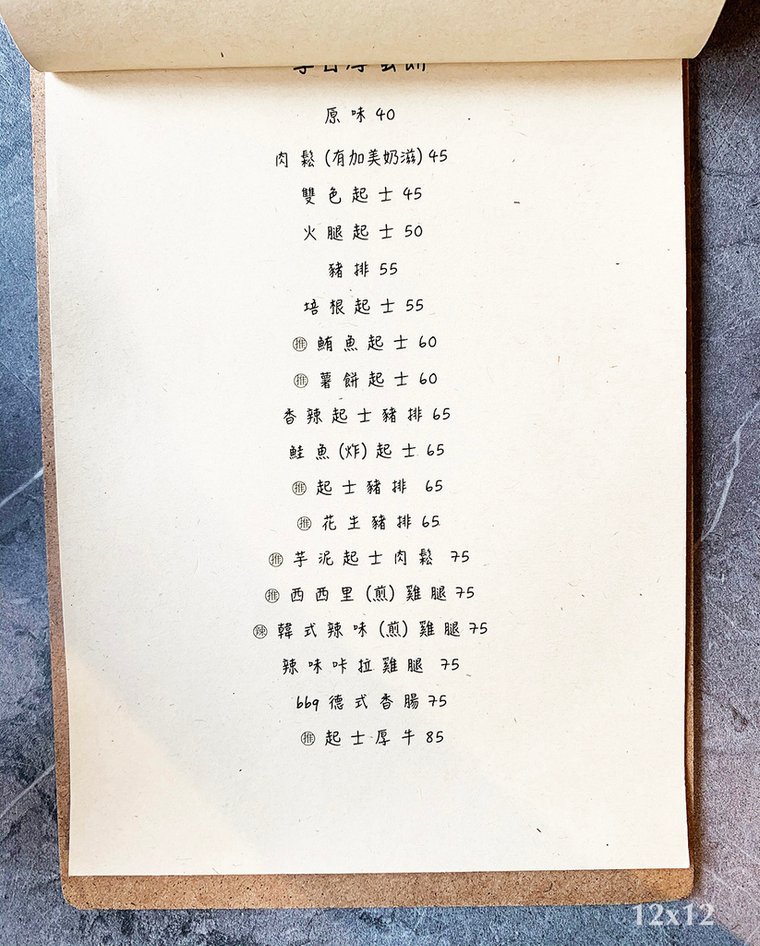 原味 40
肉鬆(有加美奶滋) 45
雙色起士 45
火腿起士 50
豬排 55
培根起士 55
推 鮪魚起士 60
推 薯餅起士 60
香辣起士豬排 65
鮭魚(炸)起士 65
推 起士豬排 65
推 花生豬排 65
推 芋泥起士肉鬆 75
推 西西里(煎)雞腿 75
辣 韓式辣味(煎)雞腿 75
辣味咔拉雞腿 75
bbq德式香腸 75
推 起士厚牛 85
12x12